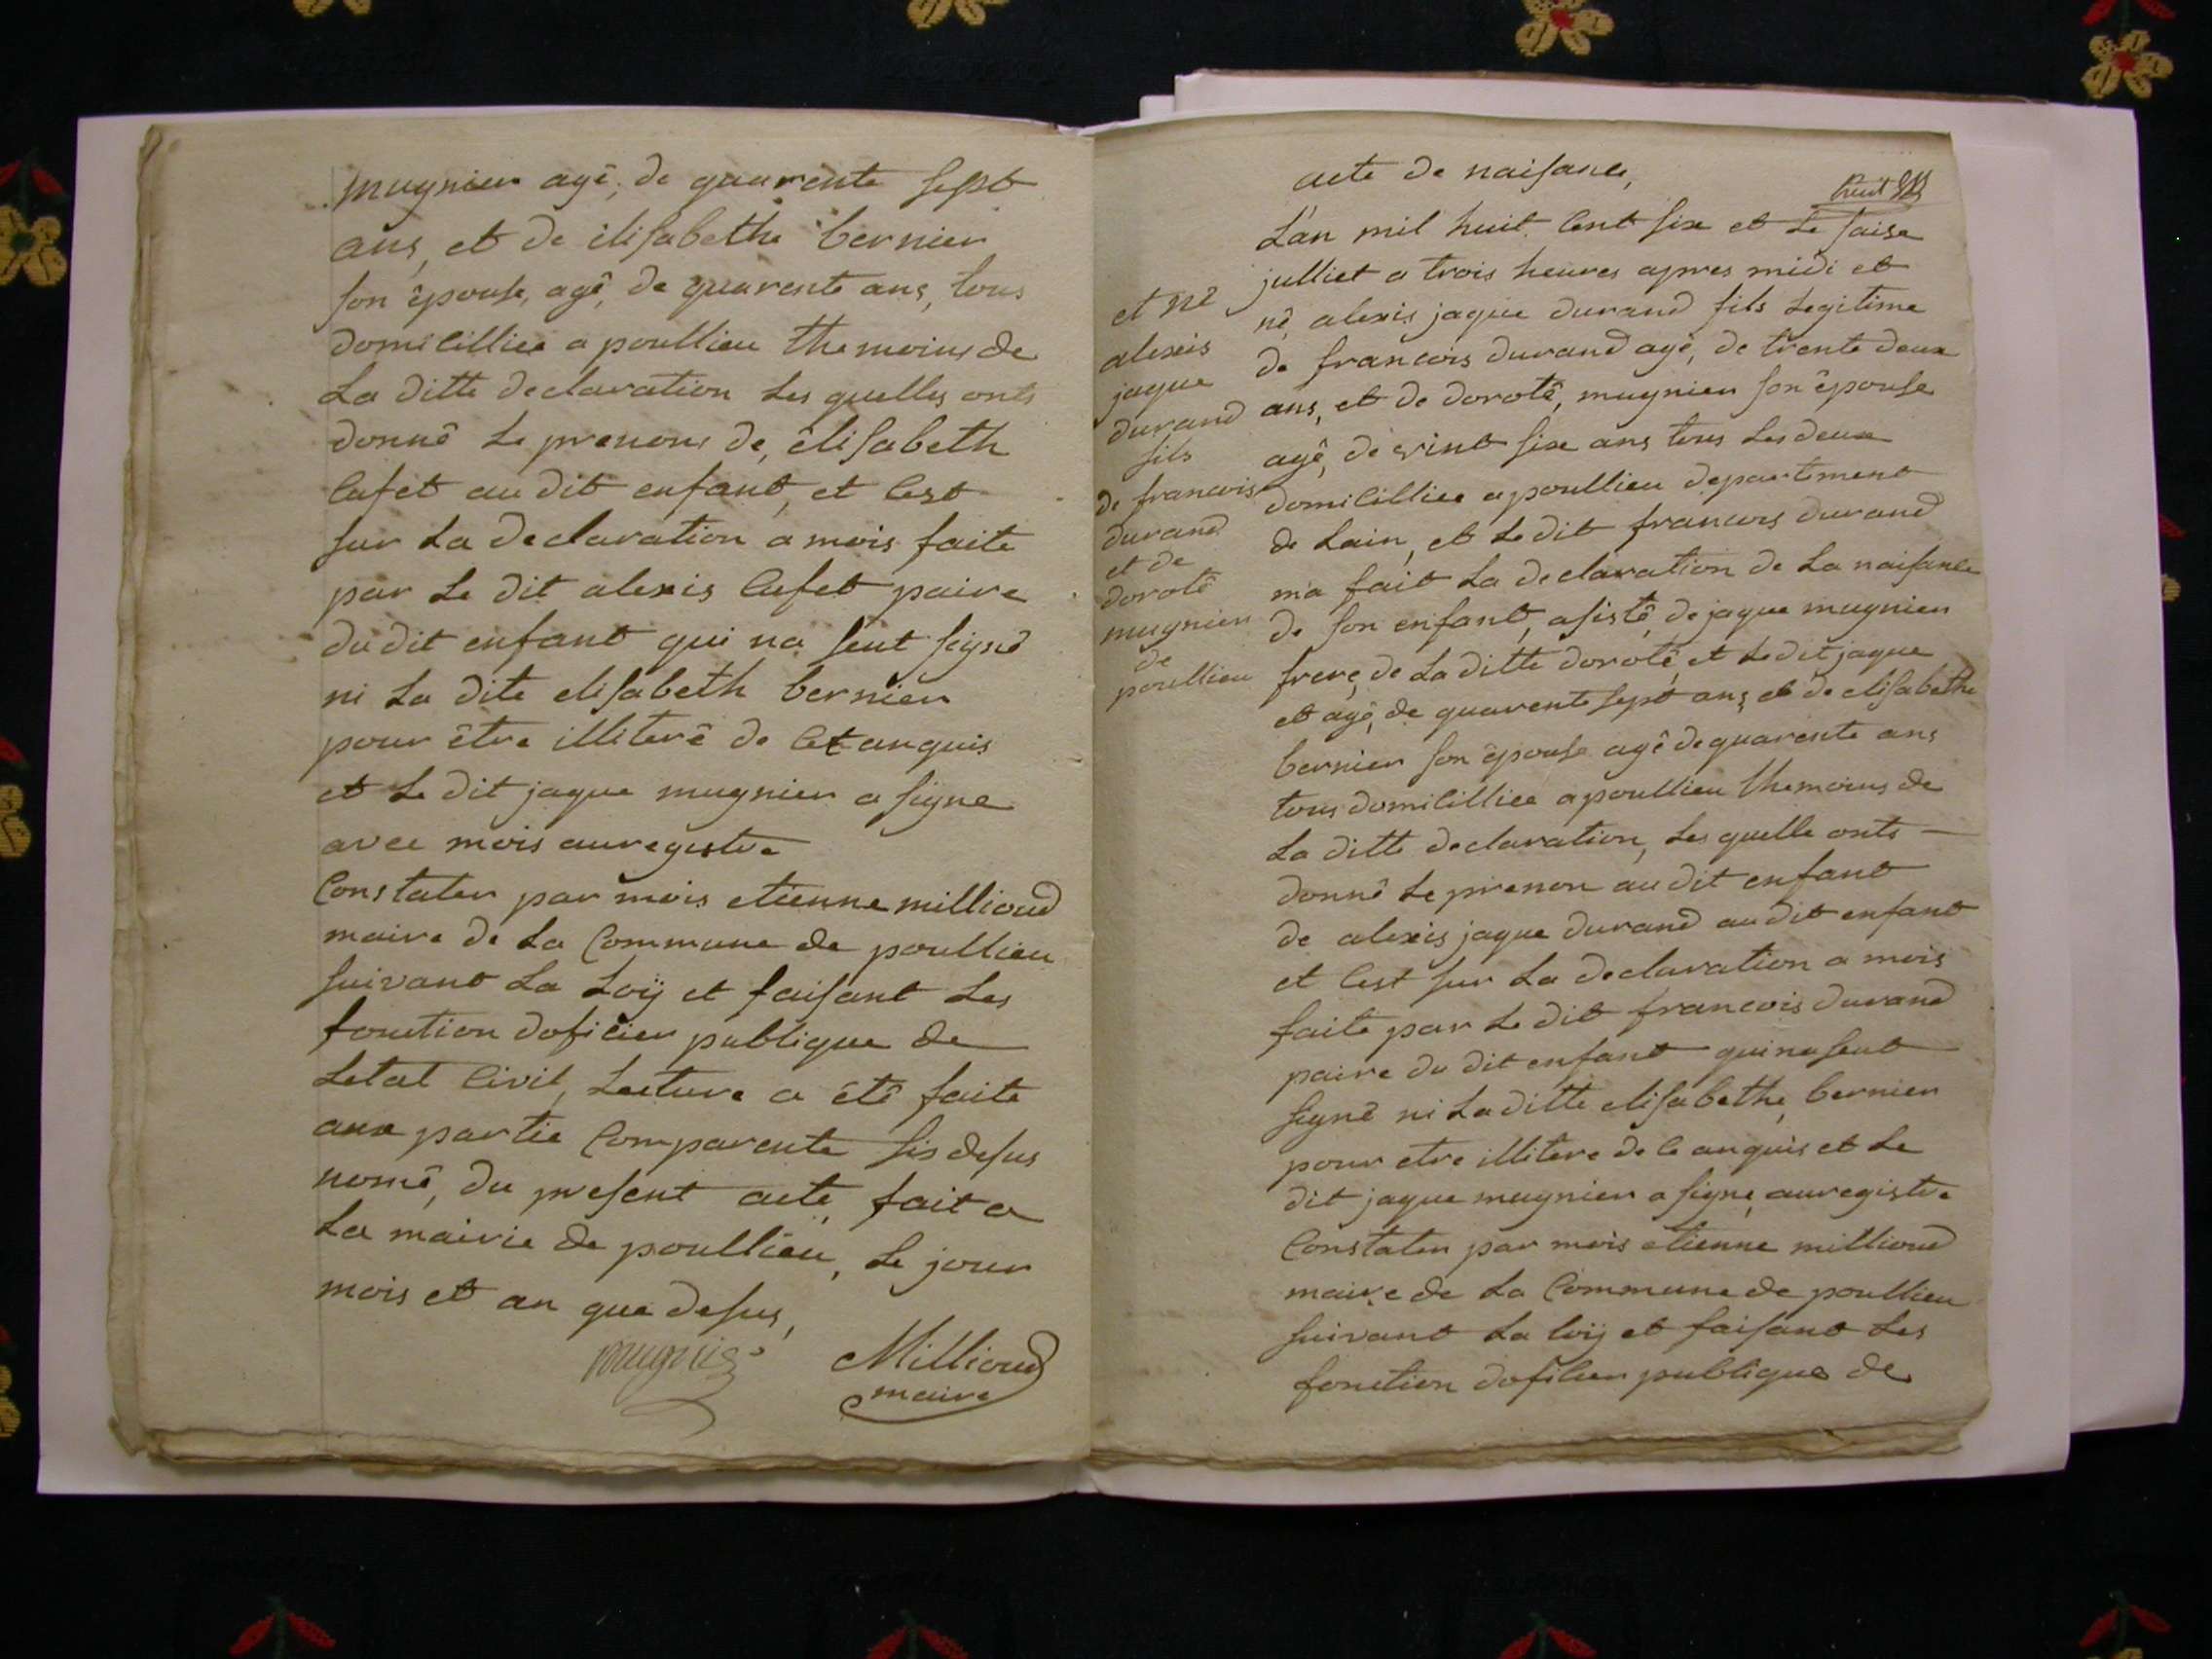 mugnier agê, de quarente sept
ans, et de elisabethe bernier
son êpouse, agê, de quarente ans, tous
domicilliee a poullieu themoins de
La ditte declaration Les quelles onts
donnê Le prenoms de, êlisabeth
Cufet au dit enfant, et Cest
sur La declaration a mois faite
par Le dit alexis Cufet paire
du dit enfant qui na seut signê
ni La dite elisabeth bernier
pour être illiterê de Cet anquis
et Le dit jaque mugnier a signe
avec mois auregistre
Constater par mois etienne millioud
maire de La Commune de poullieu
suivant La Loÿ et faisant Les
fonction doficier publique de
Letat Civil, Lecture a êtê faite
aux partie Comparente sis desus
nomê, du present acte, fait a
La mairie de poullieu, Le jour
mois et an que desus,
mugnie Millioud
maire
acte de naisance,
huit
L'an mil huit Cent six et Le saise
julliet a trois heures apres midi et
nê, alexis jaque durand fils Legitime
de francois durand agê, de trente deux
ans, et de dorotê, mugnier son êpouse
agê, de vint six ans tous Les deux
domicilliee a poullieu departement
de Lain, et Le dit francois durand
ma fait La declaration de La naisance
de son enfant, asistê, de jaque mugnier
frere, de La ditte dorotê, et Le dit jaque
et agê, de quarente sept ans, et de elisabethe
bernier son êpouse agê de quarente ans
tous domicilliee a poullieu themoins de
La ditte declaration, Les quelle onts
donnê Le prenon au dit enfant
de alexis jaque durand au dit enfant
et Cest sur La declaration a mois
faite par Le dit francois durand
paire du dit enfant qui na seut
signê ni La ditte elisabethe, bernier
pour etre illitere de Ce anquis et Le
dit jaque mugnier a signe, auregistre
Constater par mois etienne millioud
maire de La Commune de poullieu
suivant La loÿ et faisant Les
fonction doficier publique de
et nê
alexis
jaque
durand
fils
de francois
durand
et de
dorotê
mugnier
de
poullieu